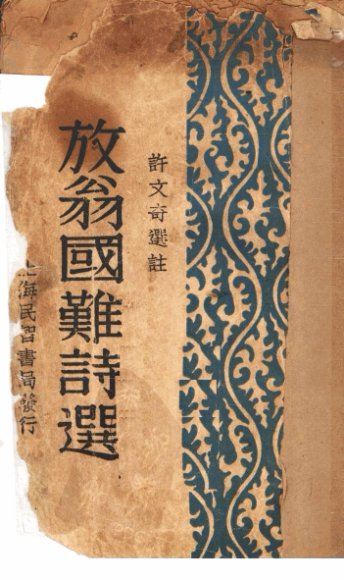 許文奇選註
放翁國難詩選
上海民習書局發行